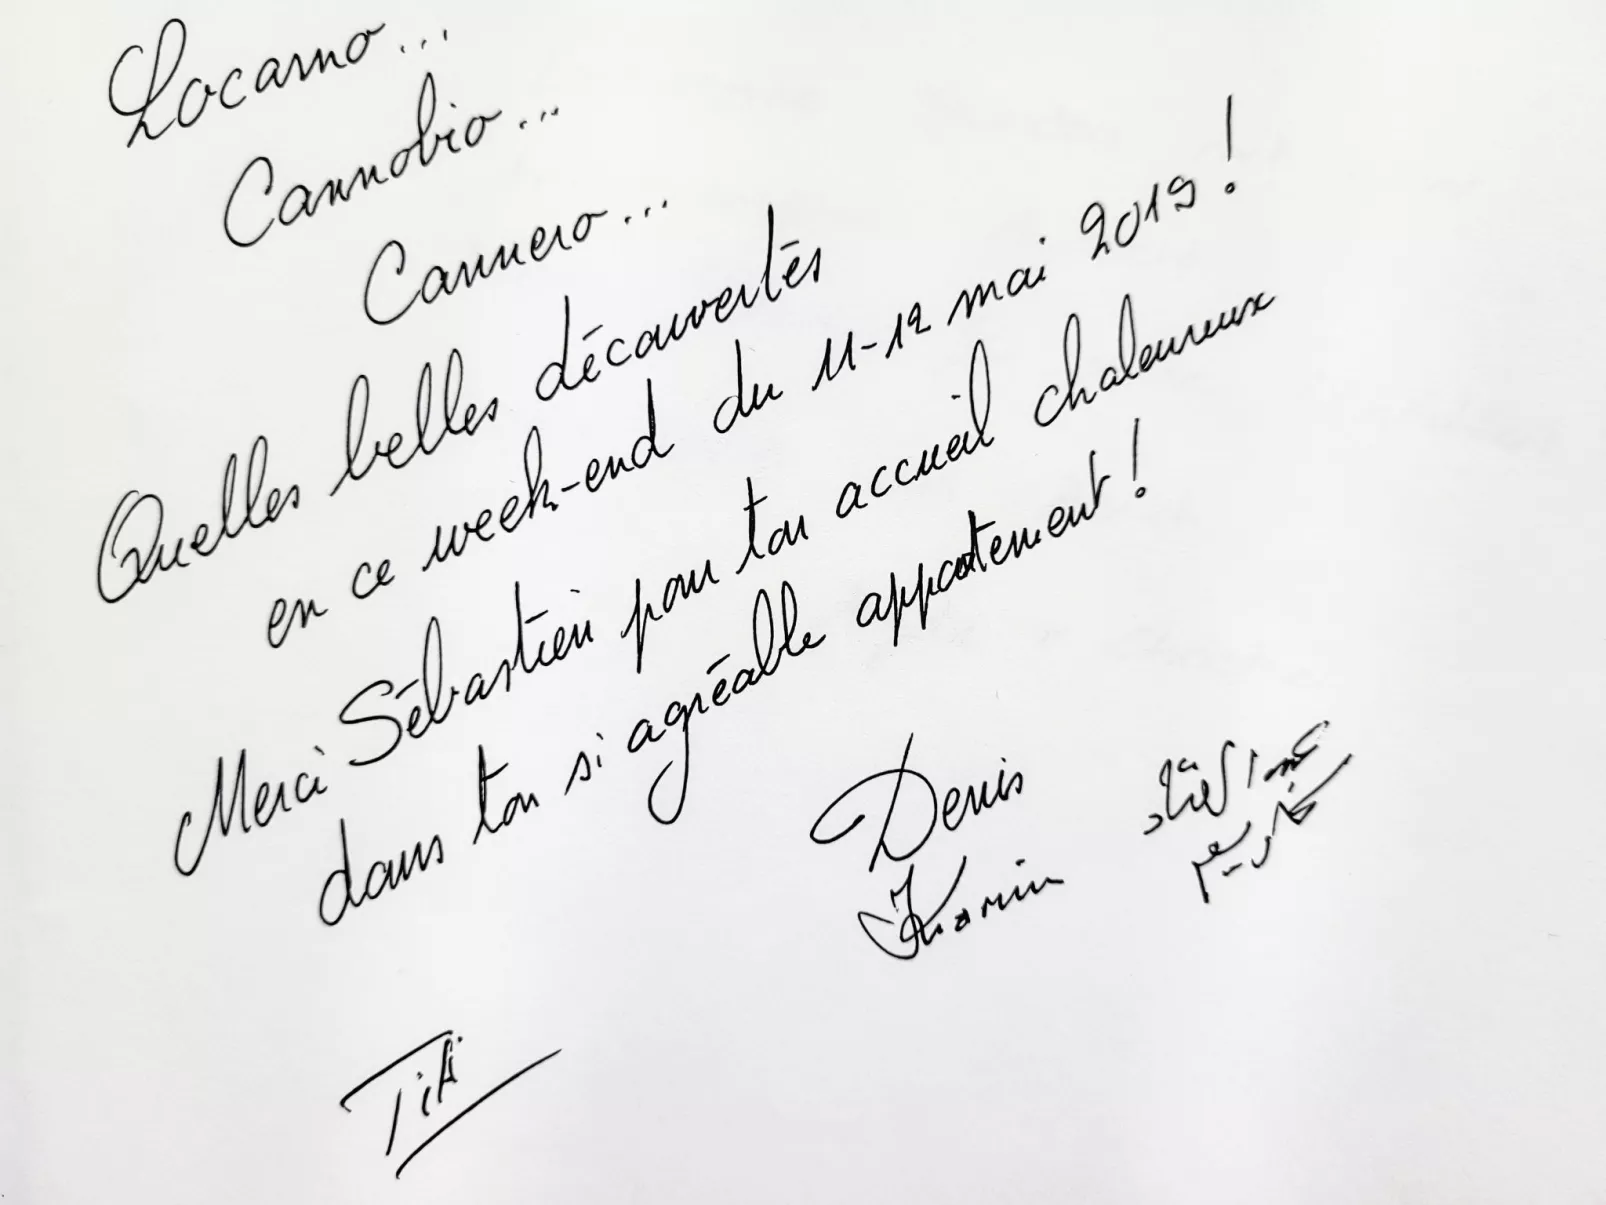 Locarno...
Cannobio...
Cannero...
Quelles belles découvertes
en ce week-end du 11-12 mai 2019!
Merci Sébastien pour ton accueil chaleureux
dans ton si agréable appartement!
Denis
Karin